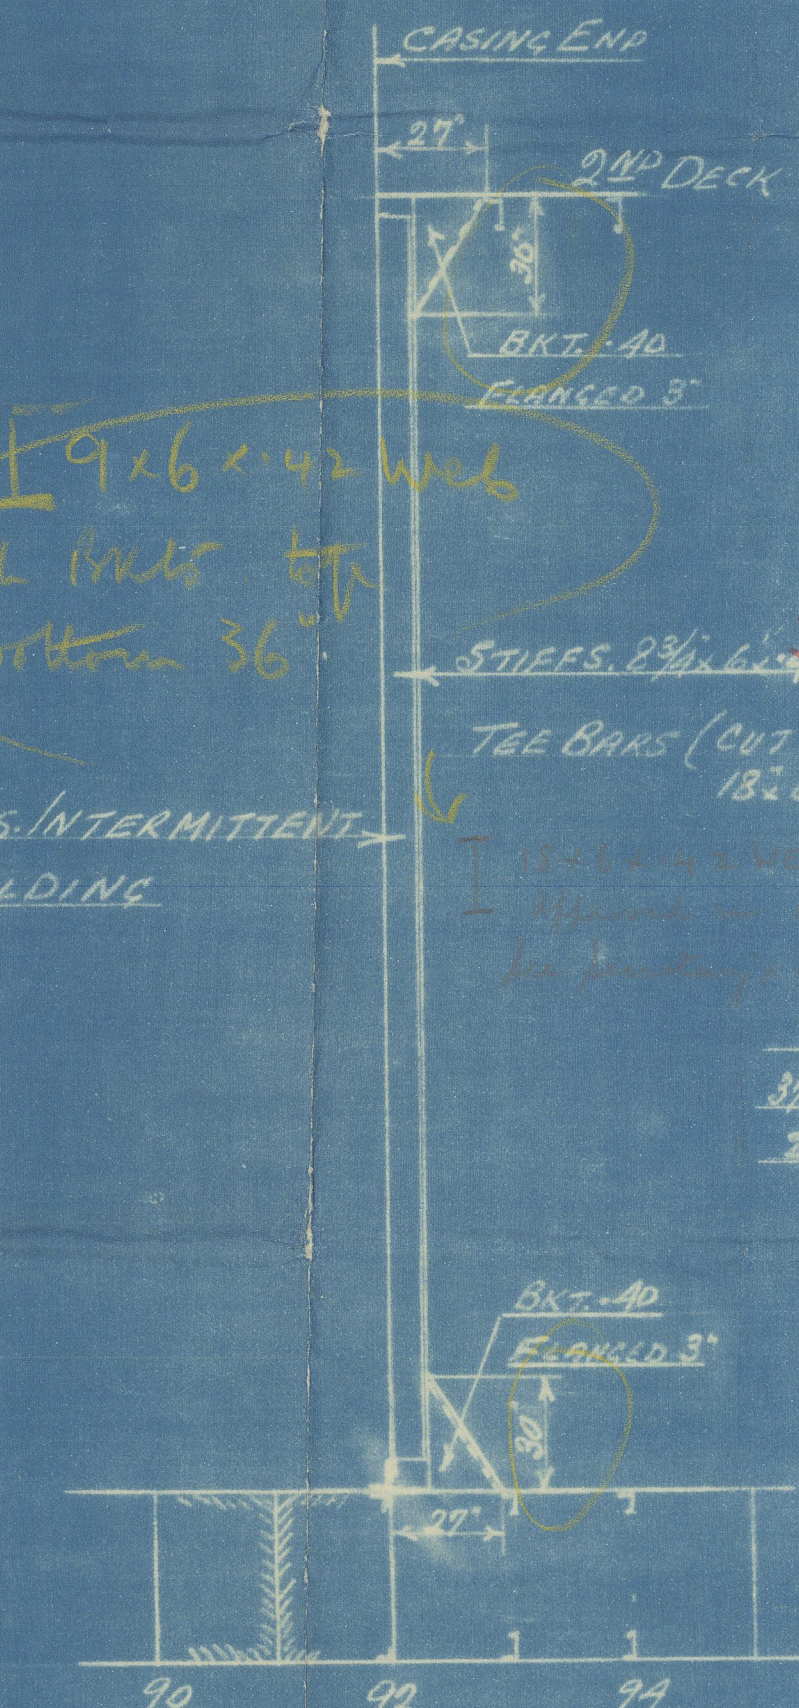 CASING END
27"
2ND DECK
36"
BKT. .40
FLANGED 3"
I 9 x 6 x .42 Web
Bkts top
bottom 36"
STIFFS. 8¾" x 6" x
TEE BARS (CUT
18" x
S. INTERMITTENT
LDING
I 18 x 6 x .42
approved
See
BKT. .40
FLANGED 3"
30"
27"
90 92 94